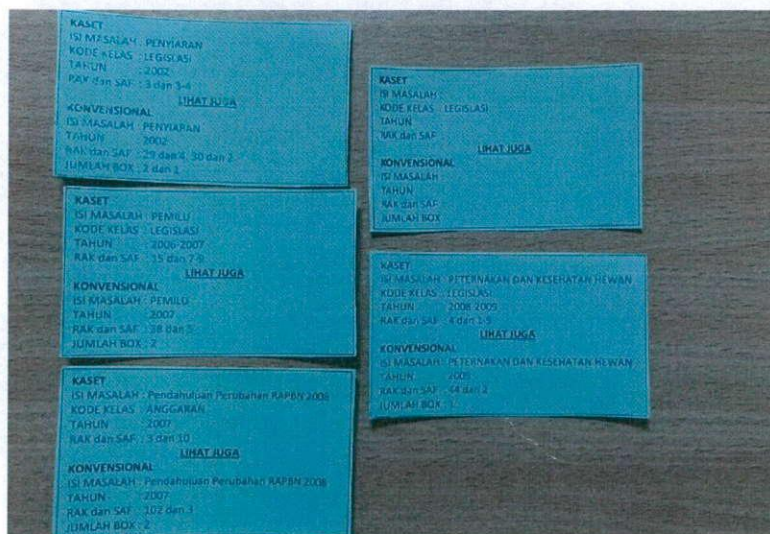 KASET
ISI MASALAH : PENYIARAN
KODE KELAS : LEGISLASI
TAHUN : 2002
RAK dan SAF : 3 dan 3-4
LIHAT JUGA
KONVENSIONAL
ISI MASALAH : PENYIARAN
TAHUN : 2002
RAK dan SAF : 29 dan 4, 30 dan 2
JUMLAH BOX : 2 dan 1
KASET
ISI MASALAH : PEMILU
KODE KELAS : LEGISLASI
TAHUN : 2006-2007
RAK dan SAF : 15 dan 7-9
LIHAT JUGA
KONVENSIONAL
ISI MASALAH : PEMILU
TAHUN : 2007
RAK dan SAF : 38 dan 5
JUMLAH BOX : 2
KASET
ISI MASALAH : Pendahuluan Perubahan RAPBN 2008
KODE KELAS : ANGGARAN
TAHUN : 2007
RAK dan SAF : 3 dan 10
LIHAT JUGA
KONVENSIONAL
ISI MASALAH : Pendahuluan Perubahan RAPBN 2008
TAHUN : 2007
RAK dan SAF : 102 dan 3
JUMLAH BOX : 2
KASET
ISI MASALAH :
KODE KELAS : LEGISLASI
TAHUN :
RAK dan SAF :
LIHAT JUGA
KONVENSIONAL
ISI MASALAH :
TAHUN :
RAK dan SAF :
JUMLAH BOX :
KASET
ISI MASALAH : PETERNAKAN DAN KESEHATAN HEWAN
KODE KELAS : LEGISLASI
TAHUN : 2008-2009
RAK dan SAF : 4 dan 1-5
LIHAT JUGA
KONVENSIONAL
ISI MASALAH : PETERNAKAN DAN KESEHATAN HEWAN
TAHUN : 2009
RAK dan SAF : 44 dan 2
JUMLAH BOX :